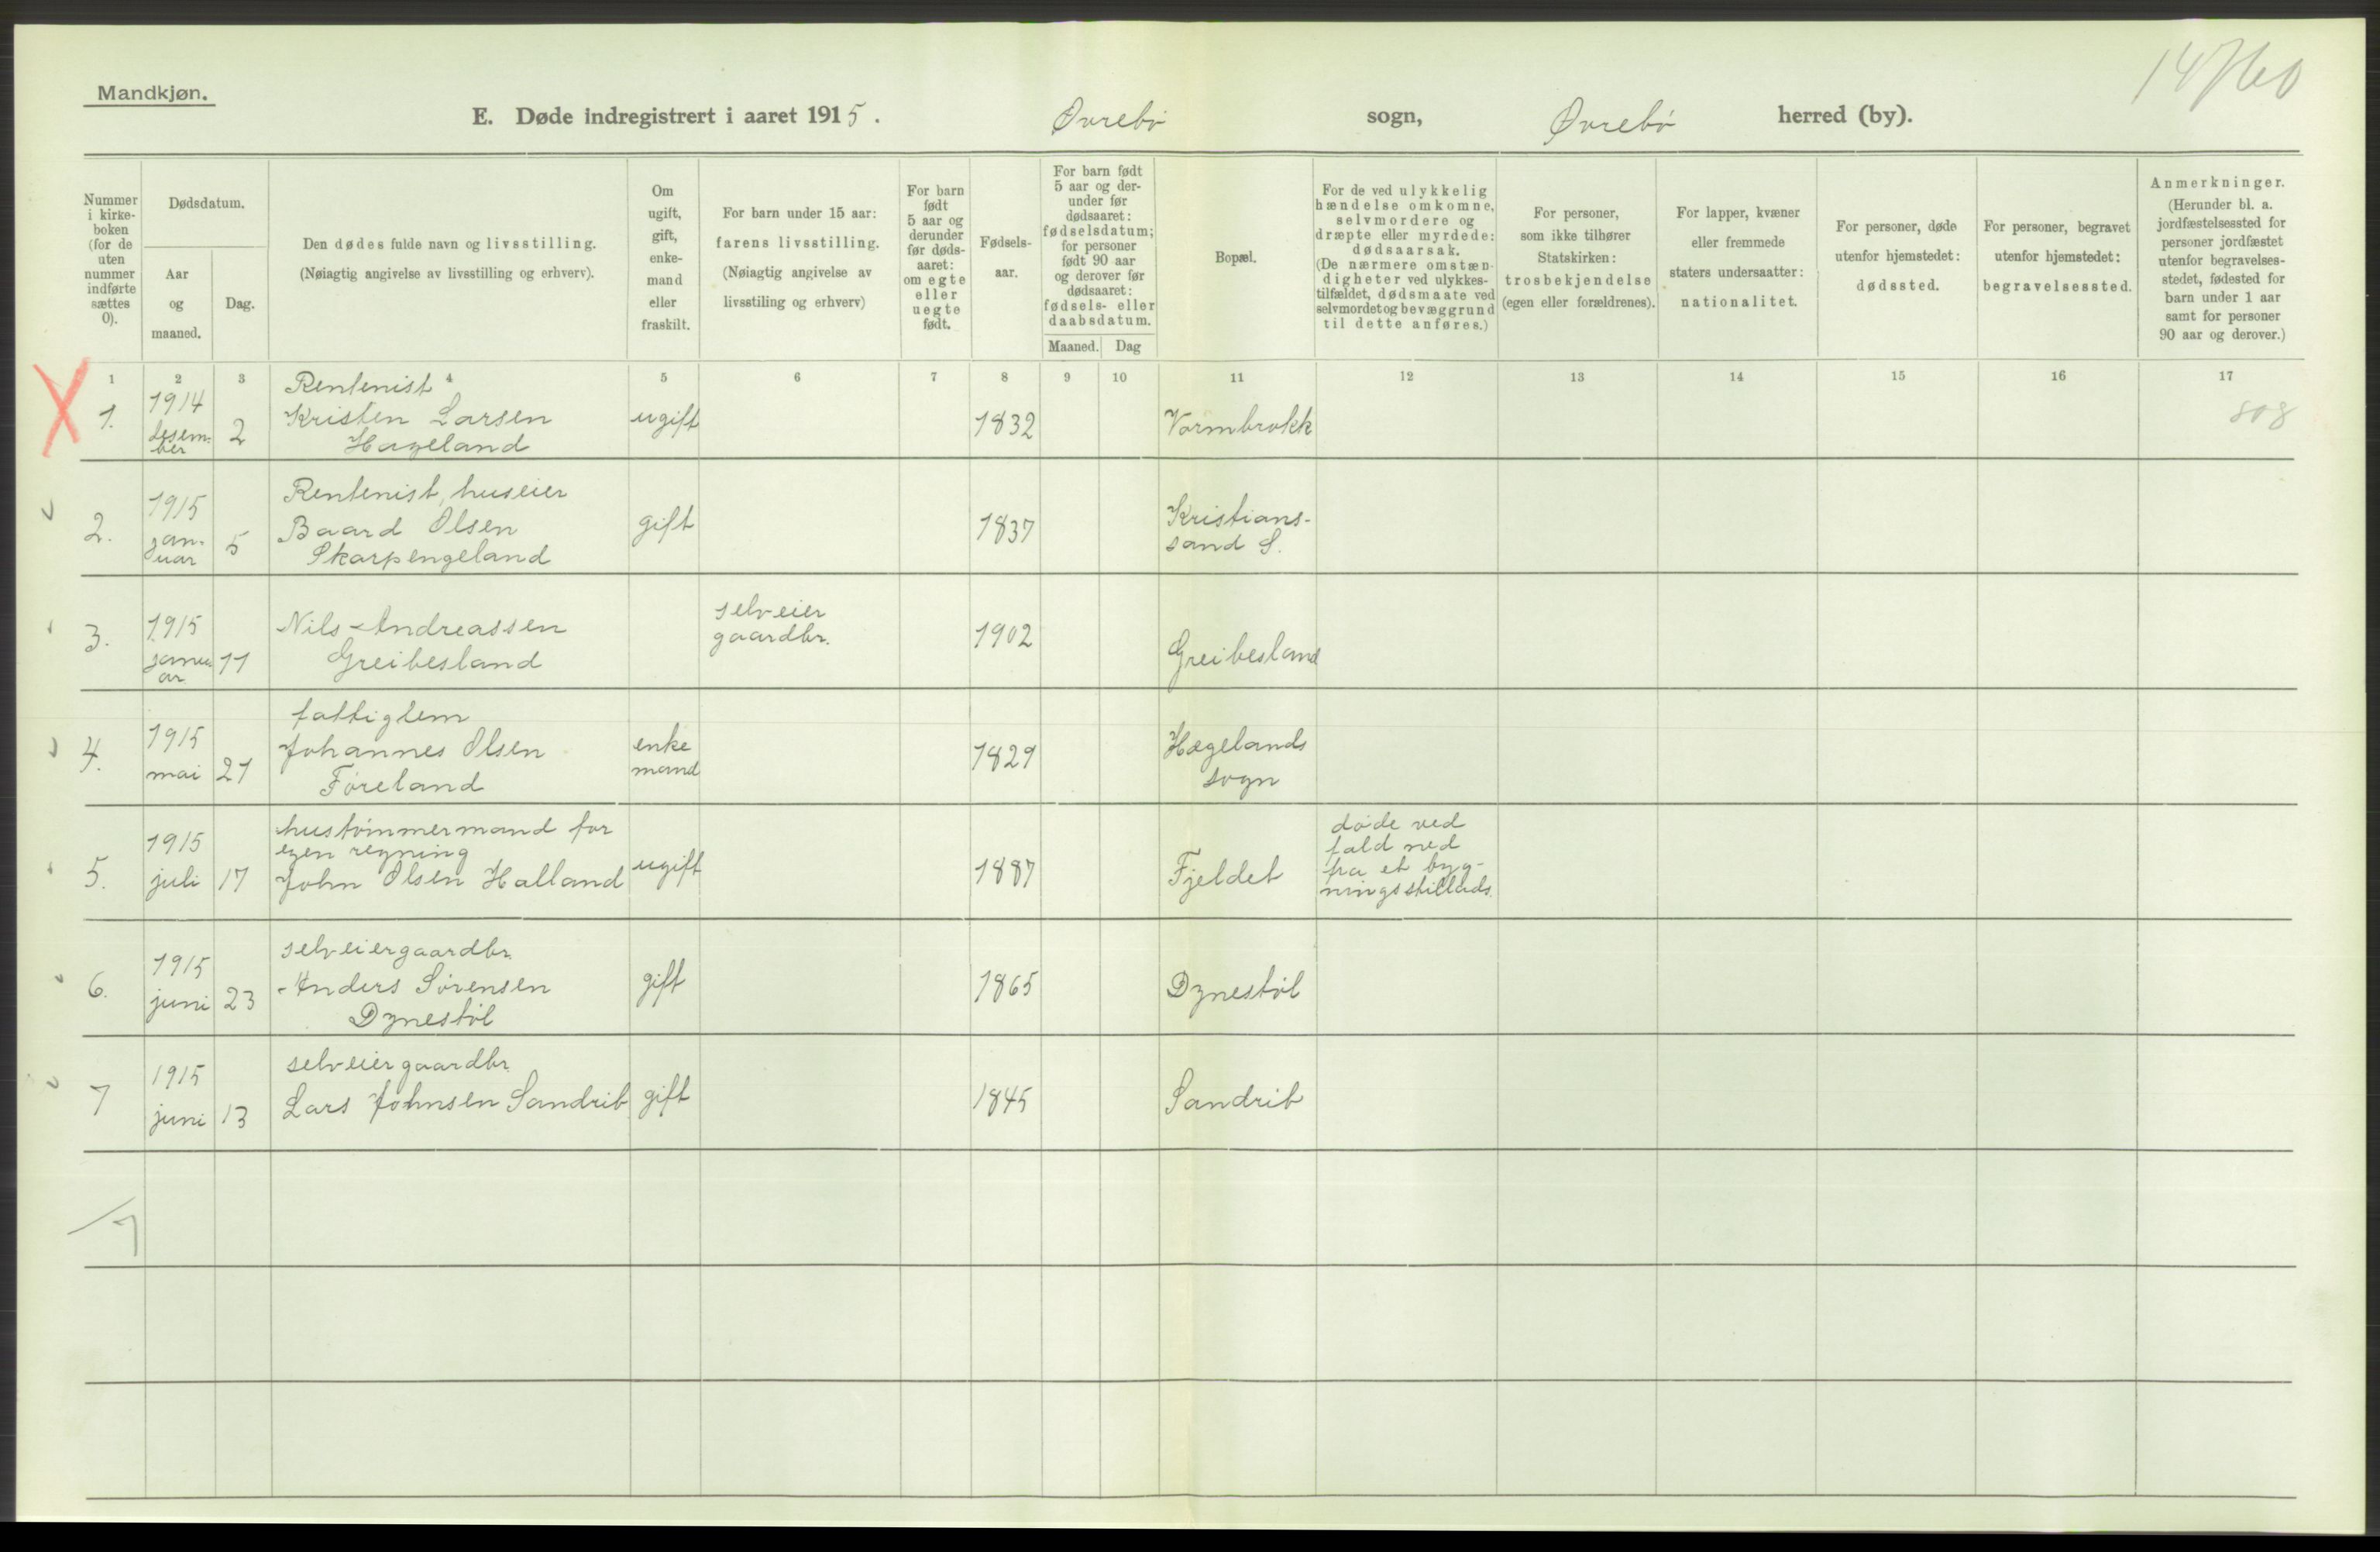 Mandkjøn.
14760
E. Døde indregistrert i aaret 1915. Øvrebø sogn, Øvrebø herred (by).
Nummer i kirke-boken (for de uten nummer indførte sættes 0).
Dødsdatum.
Aar og maaned.
Dag.
Den dødes fulde navn og livsstilling.
(Nøiagtig angivelse av livsstilling og erhverv).
Om ugift, gift, enke-mand eller fraskilt.
For barn under 15 aar:
farens livsstilling.
(Nøiagtig angivelse av
livsstiling og erhverv)
For barn født 5 aar og derunder før døds-aaret: om egte eller uegte født.
Fødsels-aar.
For barn født 5 aar og der-under før dødsaaret: fødselsdatum; for personer født 90 aar og derover før dødsaaret: fødsels- eller daabsdatum.
Maaned. Dag
Bopæl.
For de ved ulykkelig hændelse omkomne, selvmordere og dræpte eller myrdede: dødsaarsak. (De nærmere omstæn-digheter ved ulykkes-tilfældet, dødsmaate ved selvmordet og bevæggrund til dette anføres.)
For personer, som ikke tilhører Statskirken: trosbekjendelse (egen eller forældrenes).
For lapper, kvæner eller fremmede staters undersaatter: nationalitet.
For personer, døde utenfor hjemstedet: dødssted.
For personer, begravet utenfor hjemstedet: begravelsessted.
Anmerkninger. (Herunder bl. a. jordfæstelsessted for personer jordfæstet utenfor begravelses-stedet, fødested for barn under 1 aar samt for personer 90 aar og derover.)
1 2 3 4 5 6 7 8 9 10 11 12 13 14 15 16 17
1. 1914 desem-ber 2 Rentenist
Kristen Larsen
Hægeland
ugift 1832 Varmbrokk 808
2. 1915 jan-uar 5 Rentenist, huseier
Baard Olsen
Skarpengeland
gift 1837 Kristians-
sand S.
3. 1915 janu-ar 11 Nils Andreassen
Greibesland
selveier
gaardbr.
1902 Greibesland
4. 1915 mai 21 fattiglem
Johannes Olsen
Føreland
enke
mand
1829 Hægelands
sogn
5. 1915 juli 17 hustømmermand for
egen regning
John Olsen Halland
ugift 1887 Fjeldet
døde ved
fald ned
fra et byg-
ningsstillads.
6. 1915 juni 23 selveiergaardbr.
Anders Sørensen
Dynestøl
gift 1865 Dynestøl
7 1915 juni 13 selveiergaardbr.
Lars Johnsen Sandrib
gift 1845 Sandrib
7